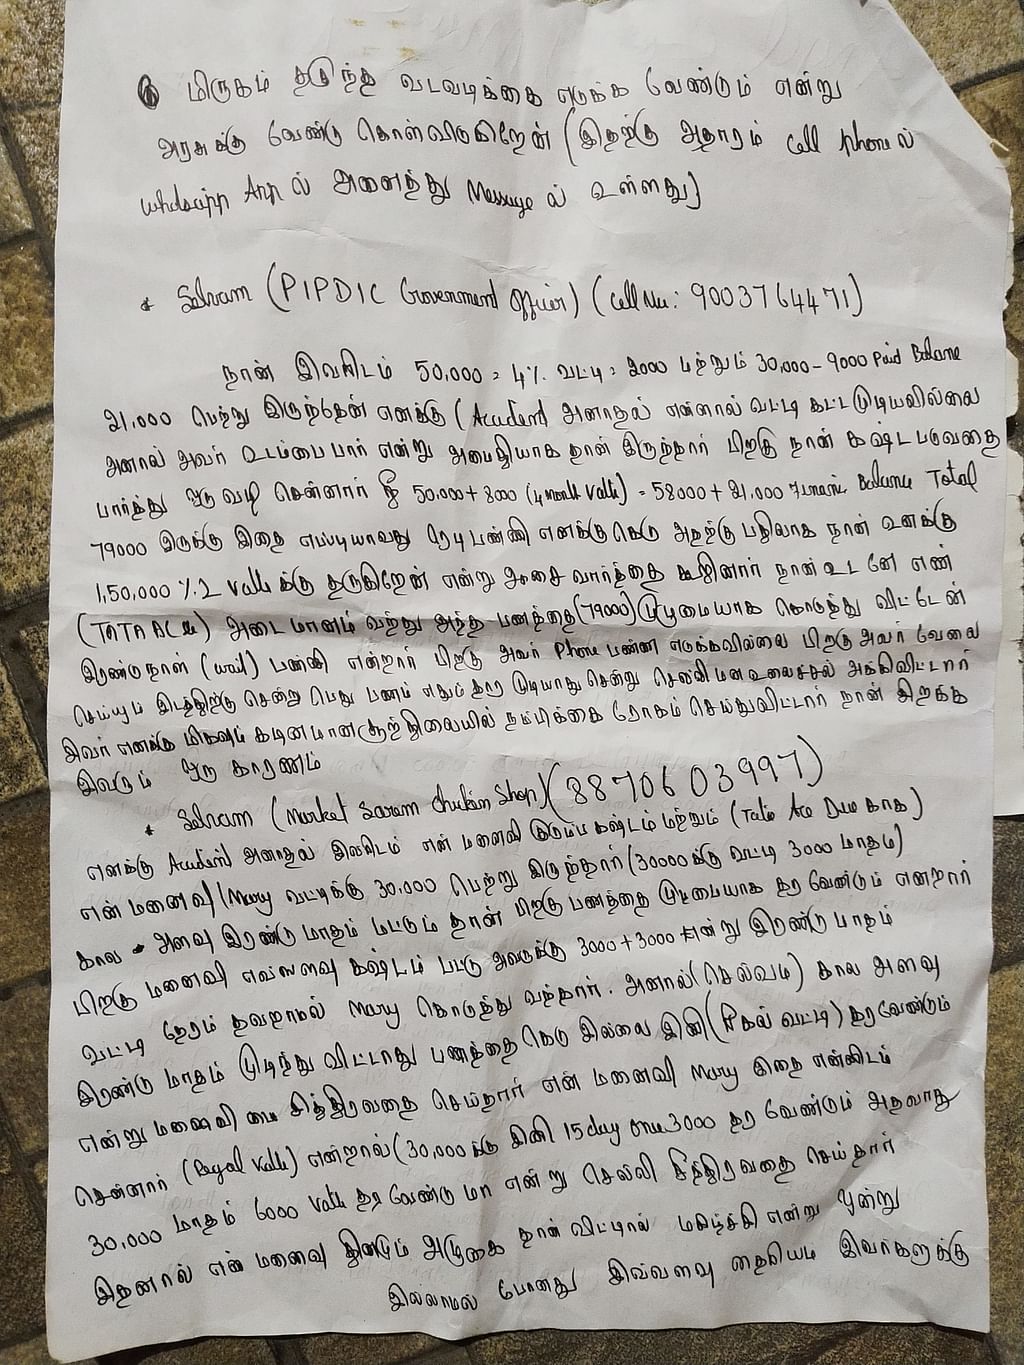 மிருகம் தகுந்த வடவடிக்கை எடுக்க வேண்டும் என்று
அரசுக்கு வேண்டு கொள்விடுகிறேன் (இதற்கு அதாரம் Cell phone ல்
whatsapp App ல் அனைத்து Message ல் உள்ளது)
* Selvam (PIPDIC Government officer) (Cell No: 9003764471)
நான் இவரிடம் 50,000 = 4% வட்டி = 2000 மற்றும் 30,000 - 9000 Paid Balance
21,000 பெற்று இருந்தேன் எனக்கு (Accident அனாதல் என்னால் வட்டி கட்டமுடியவில்லை
அனால் அவர் உடம்பை பார் என்று அமைதியாக தான் இருந்தார் பிறகு நான் கஷ்ட படுவதை
பார்த்து ஒரு வழி சென்னார் நீ 50,000 + 8000 (4 month Vatti) = 58000 + 21,000 Finance Balance Total
79000 இருக்கு இதை எப்படியாவது ரேடி பண்ணி எனக்கு கெடு அதற்கு பதிலாக நான் உனக்கு
1,50,000 %2 Vatti க்கு தருகிறேன் என்று அசை வார்த்தை கூறினார் நான் உடனே என்
(TATA ACe) அடைமானம் வைத்து அந்த பணத்தை (79000) முழுமையாக கொடுத்து விட்டேன்
இரண்டு நாள் (wait) பண்ணி என்றார் பிறகு அவர் Phone பண்ண எடுக்கவில்லை பிறகு அவர் வேலை
செய்யும் இடத்திற்கு சென்று பெது பணம் எதும் தர முடியாது சென்று செல்லி மன உலைச்சல் அக்கிவிட்டார்
இவர் எனக்கு மிகவும் கடினமான சூழ்நிலையில் நம்பிக்கை ரோகம் செய்துவிட்டார் நான் இறக்க
இவரும் ஒரு காரணம்
* Selvam (Market Saram Chicken Shop) (8870603997)
எனக்கு Accident அனாதல் இவரிடம் என் மனைவி குடும்ப கஷ்டம் மற்றும் (Tata Ace Due காக)
என் மனைவி (Mary வட்டிக்கு 30,000 பெற்று இருந்தார் (30000 க்கு வட்டி 3000 மாதம்)
கால அளவு இரண்டு மாதம் மட்டும் தான் பிறகு பணத்தை முழுமையாக தர வேண்டும் என்றார்
பிறகு மனைவி எவ்வளவு கஷ்டம் பட்டு அவருக்கு 3000 + 3000 என்று இரண்டு மாதம்
வட்டி நேரம் தவறாமல் Mary கொடுத்து வந்தார். அனால் (செல்வம்) கால அளவு
இரண்டு மாதம் முடிந்து விட்டாது பணத்தை கெடு இல்லை இனி (பகல் வட்டி) தரவேண்டும்
என்று மனைவி யை சித்திரவதை செய்தார் என் மனைவி Mary இதை என்னிடம்
சென்னார் (Pagal Vatti) என்றால் (30,000 க்கு இனி 15 day once 3000 தர வேண்டும் அதவாது
30,000 மாதம் 6000 Vatti தர வேண்டுமா என்று செல்லி சித்திரவதை செய்தார்
இதனால் என் மனைவி தினமும் அழுகை தான் விட்டில் மகிழ்ச்சி என்று ஒன்று
இல்லாமல் போனது இவ்வளவு தைரியம் இவர்களுக்கு